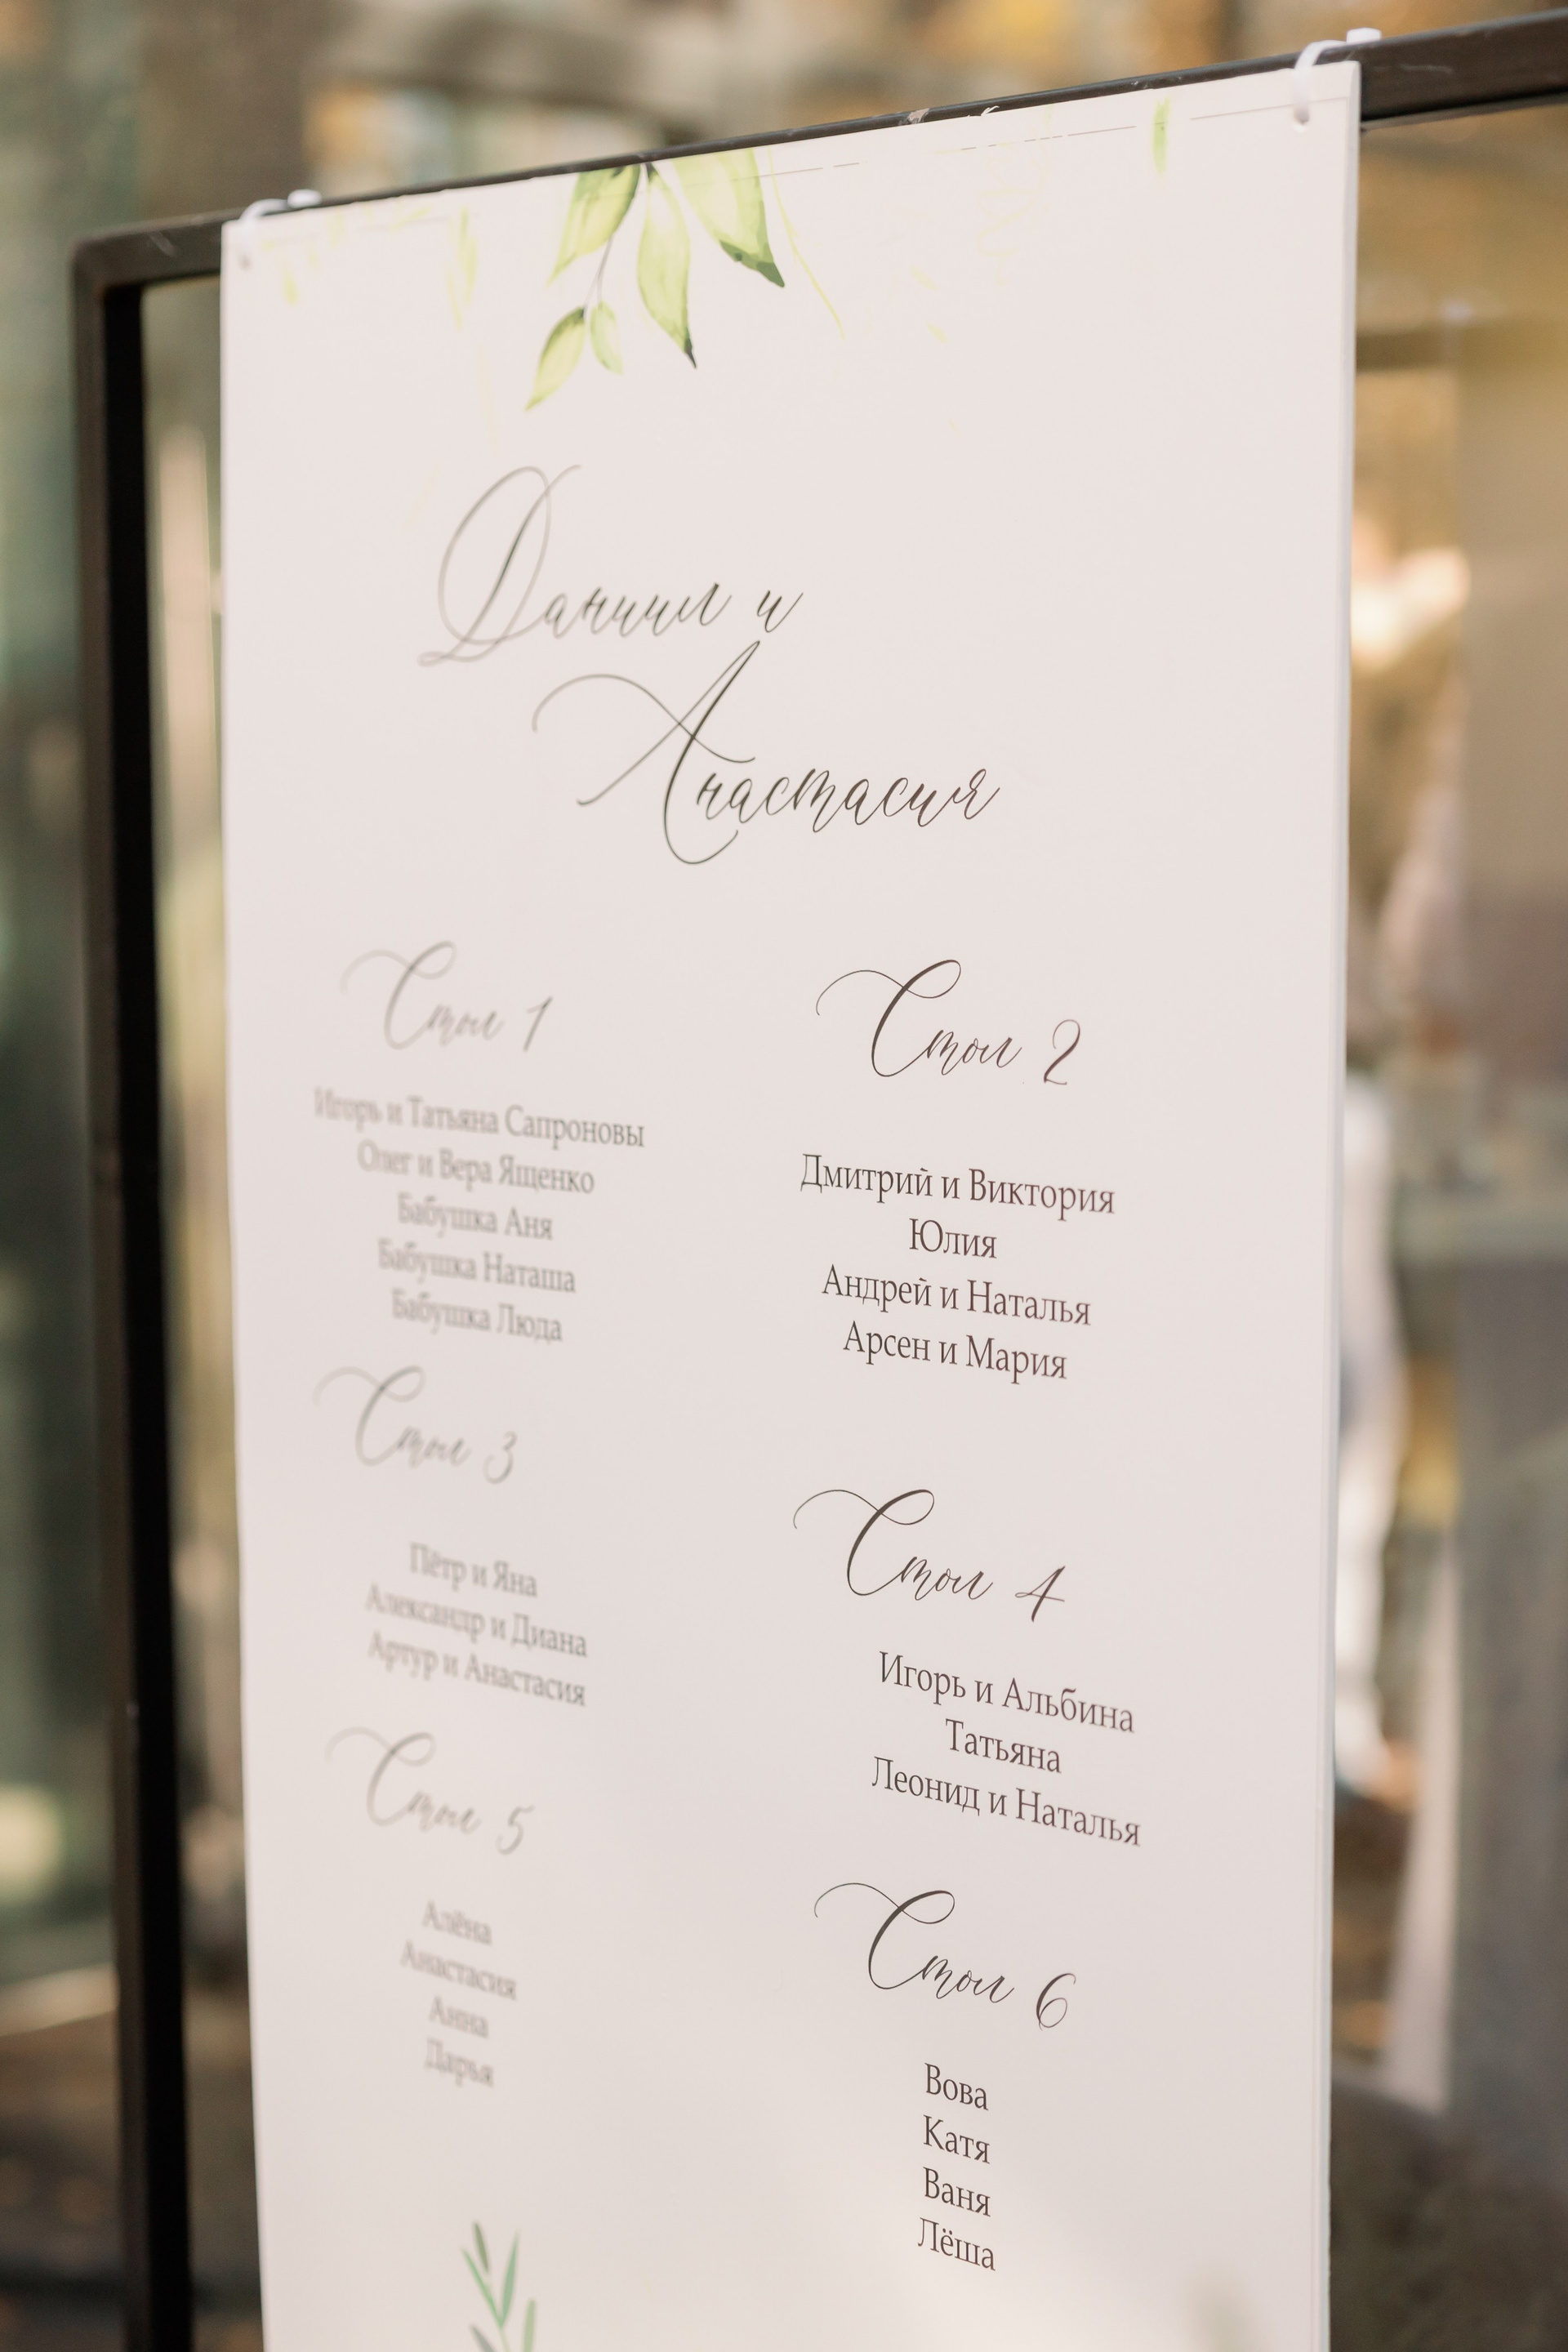 Даниил и
Анастасия
Стол 1
Игорь и Татьяна Сапроновы
Олег и Вера Ященко
Бабушка Аня
Бабушка Наташа
Бабушка Люда
Стол 2
Дмитрий и Виктория
Юлия
Андрей и Наталья
Арсен и Мария
Стол 3
Пётр и Яна
Александр и Диана
Артур и Анастасия
Стол 4
Игорь и Альбина
Татьяна
Леонид и Наталья
Стол 5
Алёна
Анастасия
Анна
Дарья
Стол 6
Вова
Катя
Ваня
Лёша